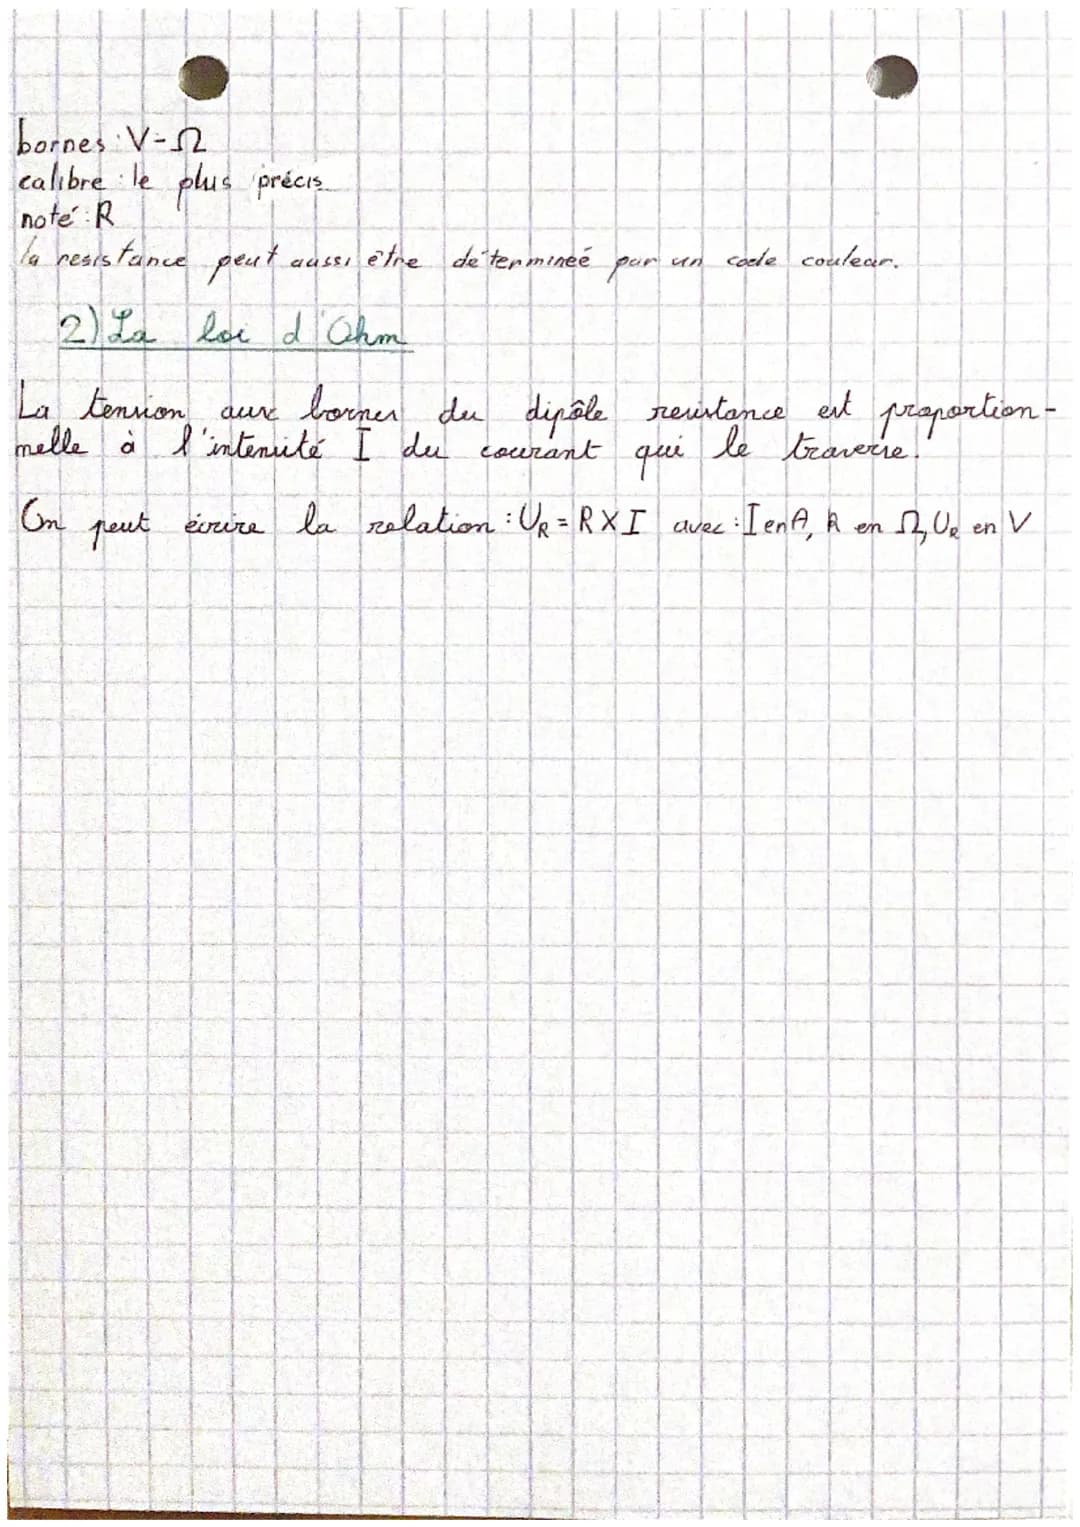 bornes : V-Ω
calibre : le plus précis
noté : R
la resistance peut aussi être determineé par un code couleur.
2) La loi d'Ohm
La tension aux bornes du dipôle resistance est proportion-
nelle à l'intensité I du courant qui le traverse.
On peut écrire la relation : UR = R X I avec : I en A, R en Ω, UR en V